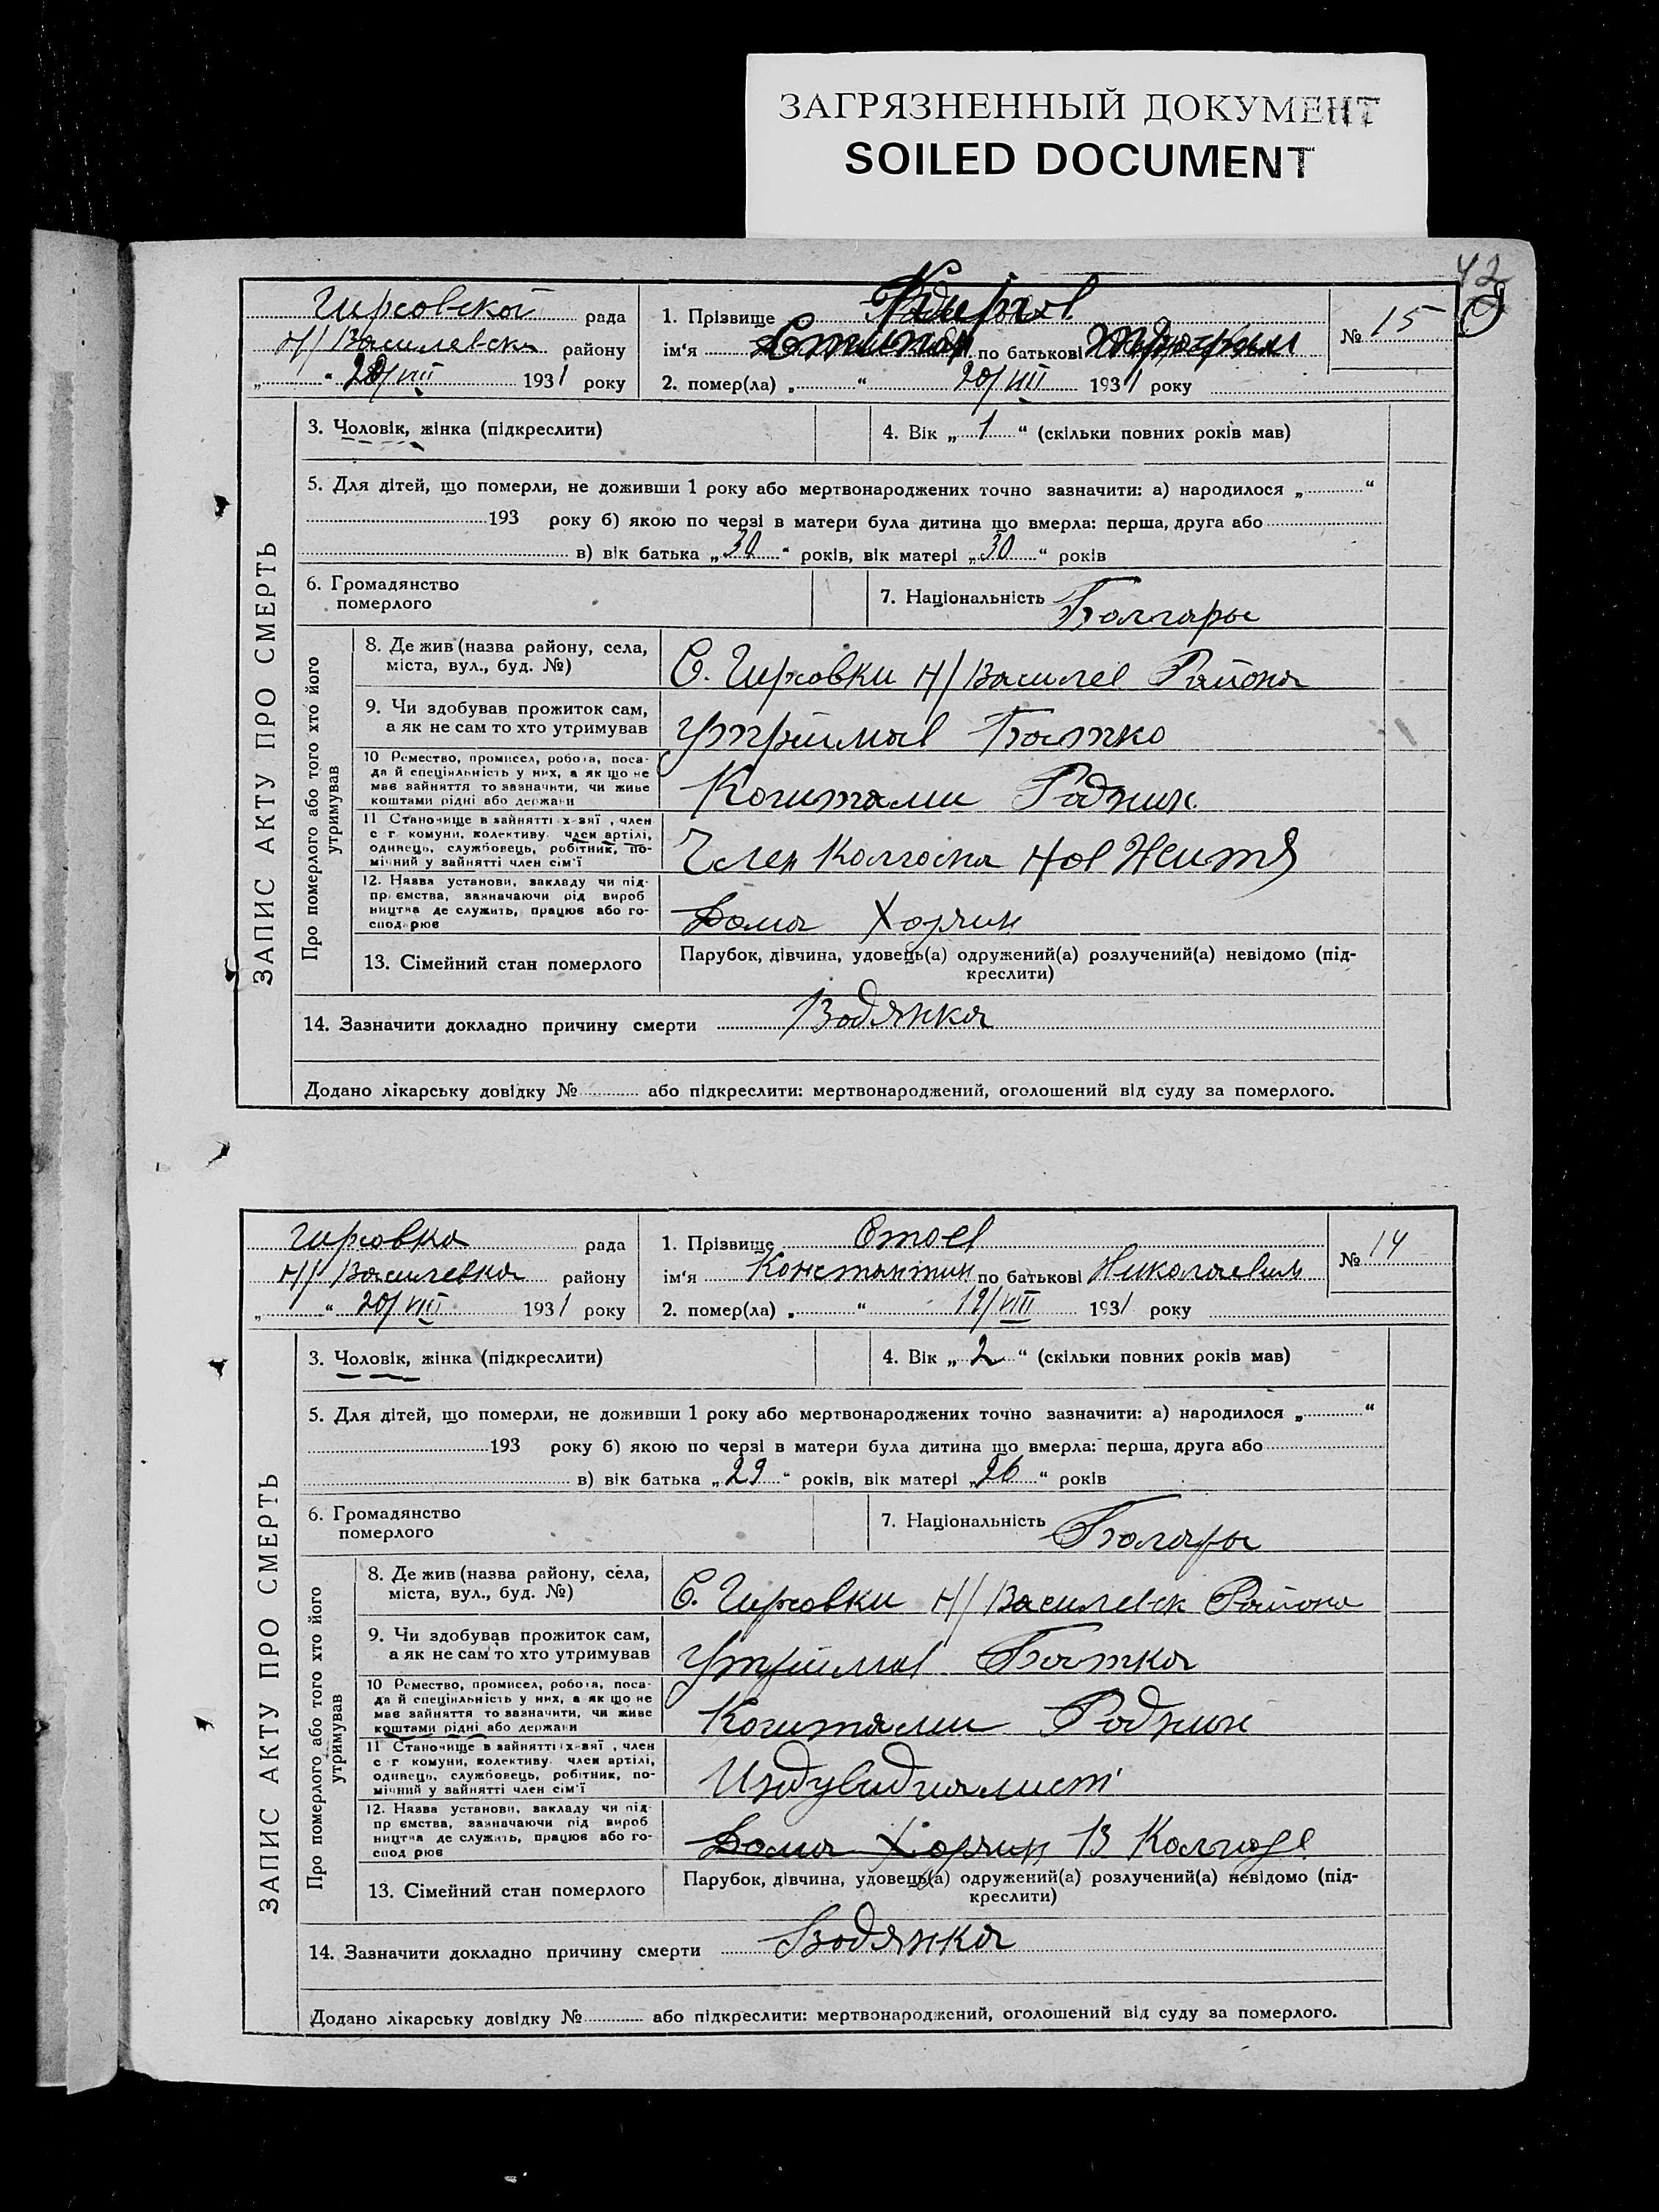 ЗАГРЯЗНЕННЫЙ ДОКУМЕНТ
SOILED DOCUMENT
42
Гирсовской рада
Н/Василевски району
„ “ 20/VIII 1931 року
1. Прізвище
ім‘я Степан по батькові
2. помер(ла) „ “ 20/VIII 1931 року
№ 15
ЗАПИС АКТУ ПРО СМЕРТЬ
3. Чоловік, жінка (підкреслити)
4. Вік „ 1 “ (скільки повних років мав)
5. Для дітей, що померли, не доживши 1 року або мертвонароджених точно зазначити: а) народилося „ “
193 року б) якою по черзі в матери була дитина що вмерла: перша, друга або
в) вік батька „ 30 “ років, вік матері „ 30 “ років
6. Громадянство
померлого
7. Національність Болгары
Про померлого або того хто його
утримував
8. Де жив (назва району, села,
міста, вул., буд. №)
С. Гирсовки Н/Василев Района
9. Чи здобував прожиток сам,
а як не сам то хто утримував
Утрймав Батко
10 Ремество, промисел, робота, поса-
да й спеціяльність у них, а як що не
має зайняття то зазначити, чи живе
коштами рідні або держави
Коштами Родних
11 Становище в зайнятті х-зяї , член
с г комуни, колективу член артілі,
одинець, службовець, робітник, по-
мічний у зайнятті член сім‘ї
Член Колгоспа Нов Житя
12. Назва установи, закладу чи під-
пр ємства, зазначаючи рід вироб
ництва де служить, працює або го-
спод рює
Дома Хорчин
13. Сімейний стан померлого
Парубок, дівчина, удовець(а) одружений(а) розлучений(а) невідомо (під-
креслити)
14. Зазначити докладно причину смерти Водянка
Додано лікарську довідку № або підкреслити: мертвонароджений, оголошений від суду за померлого.
Гирсовка рада
Н/Василевка району
„ “ 20/VIII 1931 року
1. Прізвище Стоев
ім‘я Константин по батькові Николаевич
2. помер(ла) „ “ 19/VIII 1931 року
№ 14
ЗАПИС АКТУ ПРО СМЕРТЬ
3. Чоловік, жінка (підкреслити)
4. Вік „ 2 “ (скільки повних років мав)
5. Для дітей, що померли, не доживши 1 року або мертвонароджених точно зазначити: а) народилося „ “
193 року б) якою по черзі в матери була дитина що вмерла: перша, друга або
в) вік батька „ 29 “ років, вік матері „ 26 “ років
6. Громадянство
померлого
7. Національність Болгары
Про померлого або того хто його
утримував
8. Де жив (назва району, села,
міста, вул., буд. №)
С. Гирсовки Н/Василевск Района
9. Чи здобував прожиток сам,
а як не сам то хто утримував
Утрймав Батка
10 Ремество, промисел, робота, поса-
да й спеціяльність у них, а як що не
має зайняття то зазначити, чи живе
коштами рідні або держави
Коштами Родних
11 Становище в зайнятті х-зяї , член
с г комуни, колективу член артілі,
одинець, службовець, робітник, по-
мічний у зайнятті член сім‘ї
Индувидиалист
12. Назва установи, закладу чи під-
пр ємства, зазначаючи рід вироб
ництва де служить, працює або го-
спод рює
Дома Хорчин В
13. Сімейний стан померлого
Парубок, дівчина, удовець(а) одружений(а) розлучений(а) невідомо (під-
креслити)
14. Зазначити докладно причину смерти Водянка
Додано лікарську довідку № або підкреслити: мертвонароджений, оголошений від суду за померлого.